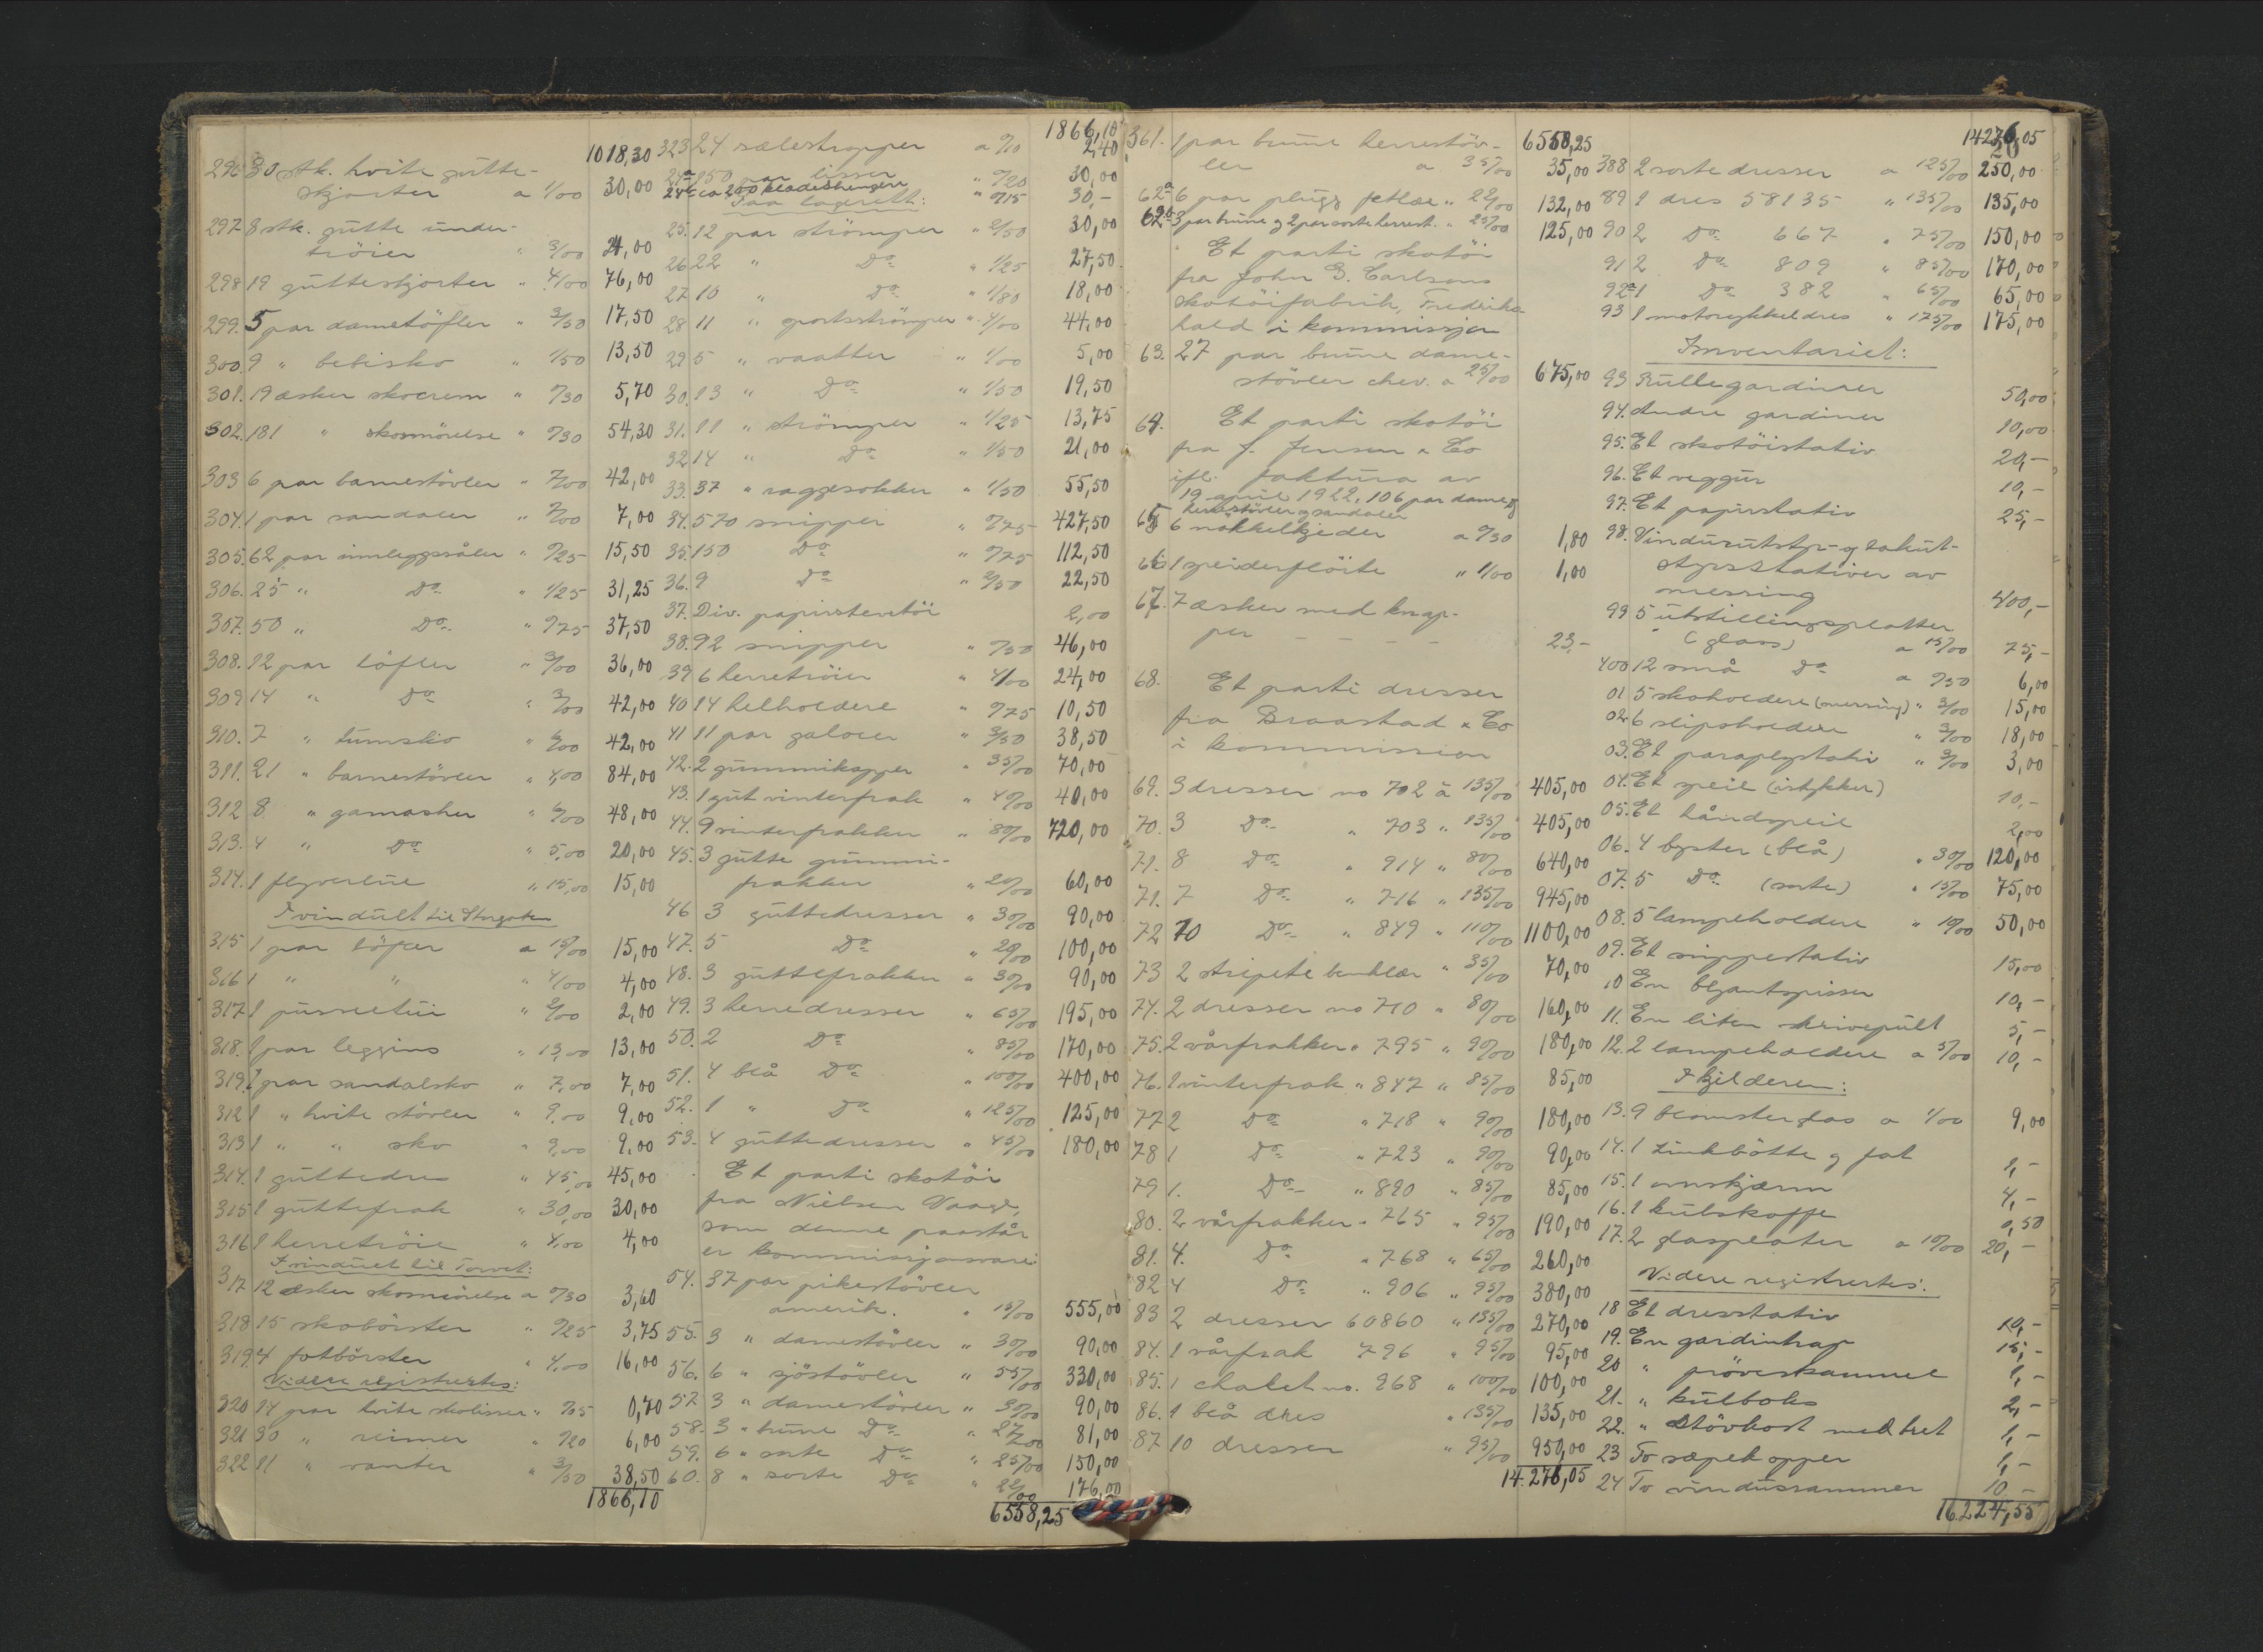 1018,30
296 30 stk. hvite gutte-
skjorter a 1/00 30,00
297 8 stk. gutte under-
tröier " 3/00 24,00
298 19 gutteskjorter " 4/00 76,00
299. 5 par dametöfler " 3/50 17,50
300. 9 " bebisko " 1/50 13,50
301. 19 æsker skocrem " 0/30 5,70
302. 181 " skosmörelse " 0/30 54,30
303 6 par barnestövler " 7/00 42,00
304. 1 par sandaler " 7/00 7,00
305. 62 par innleggssåler " 0/25 15,50
306. 25 " Do " 1/25 31,25
307. 50 " Do " 0/75 37,50
308. 12 par töfler " 3/00 36,00
309 14 " Do " 3/00 42,00
310. 7 " turnsko " 6/00 42,00
311. 21 " barnestövler " 4,00 84,00
312 8 " gamasher " 6/00 48,00
313. 4 " Do " 5,00 20,00
314. 1 flyverlue " 15,00 15,00
I vinduet til Storgaten
315 1 par töfler a 15/00 15,00
316 1 " " " 4/00 4,00
317 1 pusseetui " 2/00 2,00
318. 1 par leggins " 13,00 13,00
319. 1 par sandalsko " 7,00 7,00
312 1 " hvite stövler " 9,00 9,00
313 1 " " sko " 9,00 9,00
314. 1 guttedres " 45,00 45,00
315 1 guttefrak " 30,00 30,00
316 1 herretröie " 4,00 4,00
I vinduet til Torvet:
317 12 æsker skosmörelse a 0/30 3,60
318 15 skobörster " 0/25 3,75
319. 4 fotbörster " 4,00 16,00
Videre registrertes:
320 14 par hvite skolisser " 0/05 0,70
321 30 " reimer " 0/20 6,00
322 11 " vanter " 3/50 38,50
1866,10
1866,10
323 24 sælestropper a 0/10 2,40
24a 150 par lisser " 0/20 30,00
24b ca 200 klædeshengere " 0/15 30,-
Paa lageret:
25. 12 par strömper " 2/50 30,00
26 22 " Do " 1/25 27,50
27 10 " Do " 1/80 18,00
28 11 " sportsströmper " 4/00 44,00
29 5 " vaatter " 1/00 5,00
30. 13 " Do " 1/50 19,50
31. 11 " strömper " 1/25 13,75
32 14 " Do " 1/50 21,00
33. 37 " raggesokker " 1/50 55,50
34. 570 snipper " 0/75 427,50
35. 150 Do " 0/75 112,50
36. 9 Do " 2/50 22,50
37. Div. papirstentöi 2,00
38. 92 snipper " 0/50 46,00
39 6 herretröier " 4/00 24,00
40 14 helholdere " 0/75 10,50
41 11 par galocer " 3/50 38,50
42. 2 gummikapper " 35/00 70,00
43. 1 gut vinterfrak " 40/00 40,00
44. 9 vinterfrakker " 80/00 720,00
45. 3 gutte gummi-
frakker " 20/00 60,00
46 3 guttedresser " 30/00 90,00
47. 5 Do " 20/00 100,00
48. 3 guttefrakker " 30/00 90,00
49. 3 herredresser " 65/00 195,00
50. 2 Do " 85/00 170,00
51. 4 blå Do " 100/00 400,00
52. 1 " Do " 125/00 125,00
53. 4 guttedresser " 45/00 180,00
Et parti skotöi
fra Nielsen Vaage,
som denne paastår
er kommissjonsvare:
54. 37 par pikestövler
amerik. " 15/00 555,00
55. 3 " damestövler " 30/00 90,00
56. 6 " sjöstövler " 55/00 330,00
57. 3 " damestövler " 30/00 90,00
58. 3 " brune Do " 27/00 81,00
59. 6 " sorte Do " 25/00 150,00
60. 8 " sorte Do " 22/00 176,00
6558,25
6558,25
361. 1 par brune herrestöv-
ler a 35/00 35,00
62a 6 par plugg fetlær " 22/00 132,00
62b 3 par brune og 2 par sorte herrest. " 25/00 125,00
Et parti skotöi
fra John G. Carlsens
skotöifabrik, Fredriks-
hald i kommissjon
63. 27 par brune dame-
stövler chev. a 25/00 675,00
64. Et parti skotöi
fra J. Jensen & Co
ifl. faktura av
19 april 1922, 106 par dame og
herrestövler og sandaler
65 6 nökkelkjeder a 0/30 1,80
66 1 speiderflöite " 1/00 1,00
67. 7 æsker med knap-
per - - - - 23,-
68. Et parti dresser
fra Braastad & Co
i kommission
69. 3 dresser no 702 à 135/00 405,00
70. 3 Do " 703 " 135/00 405,00
71. 8 Do " 914 " 80/00 640,00
71. 7 Do " 716 " 135/00 945,00
72 10 Do " 849 " 110/00 1100,00
73 2 stripete benklær " 35/00 70,00
74. 2 dresser no 710 " 80/00 160,00
75. 2 vårfrakker " 795 " 90/00 180,00
76. 1 vinterfrak " 847 " 85/00 85,00
77 2 Do " 718 " 90/00 180,00
78 1 Do " 723 " 90/00 90,00
79 1. Do " 890 " 85/00 85,00
80. 2 vårfrakker " 765 " 95/00 190,00
81. 4. Do " 768 " 65/00 260,00
82 4 Do " 906 " 95/00 380,00
83 2 dresser 60860 " 135/00 270,00
84. 1 vårfrak 796 " 95/00 95,00
85. 1 chalet no. 968 " 100/00 100,00
86. 1 blå dres " 135/00 135,00
87 10 dresser " 95/00 950,00
14.276,05
14276,05
388 2 sorte dresser a 125/00 250,00
89 1 dres 58135 " 135/00 135,00
90 2 Do 667 " 75/00 150,00
91 2 Do 809 " 85/00 170,00
92a 1 Do 382 " 65/00 65,00
93 1 motorcykkeldres " 175/00 175,00
Inventariet:
93 Rullegardiner 50,00
94. Andre gardiner 10,00
95. Et skotöistativ 20,-
96. Et veggur 10,-
97. Et papirstativ 25,-
98. Vindusutstyr- og takut-
styrsstativer av
messing 400,-
99 5 utstillingsplatter
(glass) a 15/00 75,-
400 12 små Do a 0/50 6,00
01 5 skoholdere (messing) " 3/00 15,00
02. 6 slipsholdere " 3/00 18,00
03. Et paraplystativ " 3/00 3,00
04. Et speil (istykker) 10,-
05. Et håndspeil 2,00
06. 4 byster (blå) " 30/00 120,00
07. 5 Do (sorte) " 15/00 75,00
08. 5 lampeholdere " 10/00 50,00
09. Et snippestativ 15,00
10 En blyantspisser 10,-
11. En liten skrivepult 5,-
12. 2 lampeholdere a 5/00 10,-
I kjelderen:
13. 9 blomsterglas a 1/00 9,00
14. 1 zinkbötte og fat 1,-
15. 1 ovnskjærm 4,-
16. 1 kulskuffe 0,50
17. 2 glasplater a 10/00 20,-
Videre registrertes:
18 Et dresstativ 10,-
19. En gardintrap 15,-
20 " pröveskammel 1,-
21. " kulboks 2,-
22. " stövkost med bret 1,-
23 To sæpekopper 1,-
24 To vindusrammer 10,-
16.224,55